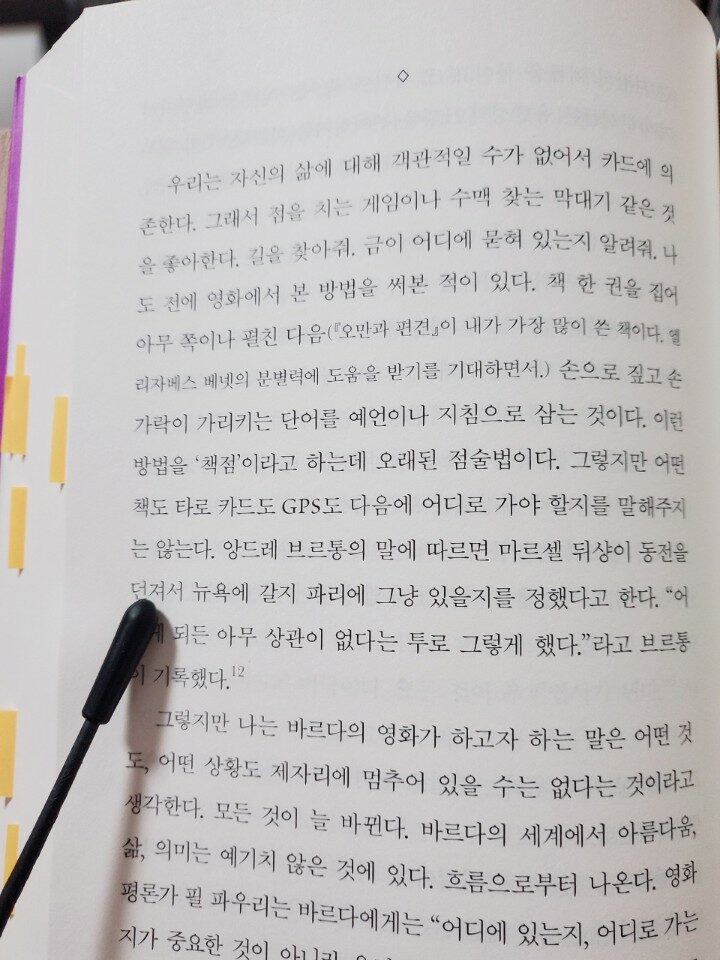 우리는 자신의 삶에 대해 객관적일 수가 없어서 카드에 의
존한다. 그래서 점을 치는 게임이나 수맥 찾는 막대기 같은 것
을 좋아한다. 길을 찾아줘. 금이 어디에 묻혀 있는지 알려줘. 나
도 전에 영화에서 본 방법을 써본 적이 있다. 책 한 권을 집어
아무 쪽이나 펼친 다음(『오만과 편견』이 내가 가장 많이 쓴 책이다. 엘
리자베스 베넷의 분별력에 도움을 받기를 기대하면서.) 손으로 짚고 손
가락이 가리키는 단어를 예언이나 지침으로 삼는 것이다. 이런
방법을 ‘책점’이라고 하는데 오래된 점술법이다. 그렇지만 어떤
책도 타로 카드도 GPS도 다음에 어디로 가야 할지를 말해주지
는 않는다. 앙드레 브르통의 말에 따르면 마르셀 뒤샹이 동전을
던져서 뉴욕에 갈지 파리에 그냥 있을지를 정했다고 한다. “어
되든 아무 상관이 없다는 투로 그렇게 했다.”라고 브르통
이 기록했다.12
그렇지만 나는 바르다의 영화가 하고자 하는 말은 어떤 것
도, 어떤 상황도 제자리에 멈추어 있을 수는 없다는 것이라고
생각한다. 모든 것이 늘 바뀐다. 바르다의 세계에서 아름다움,
삶, 의미는 예기치 않은 것에 있다. 흐름으로부터 나온다. 영화
평론가 필 파우리는 바르다에게는 “어디에 있는지, 어디로 가는
지가 중요한 것이 아니라